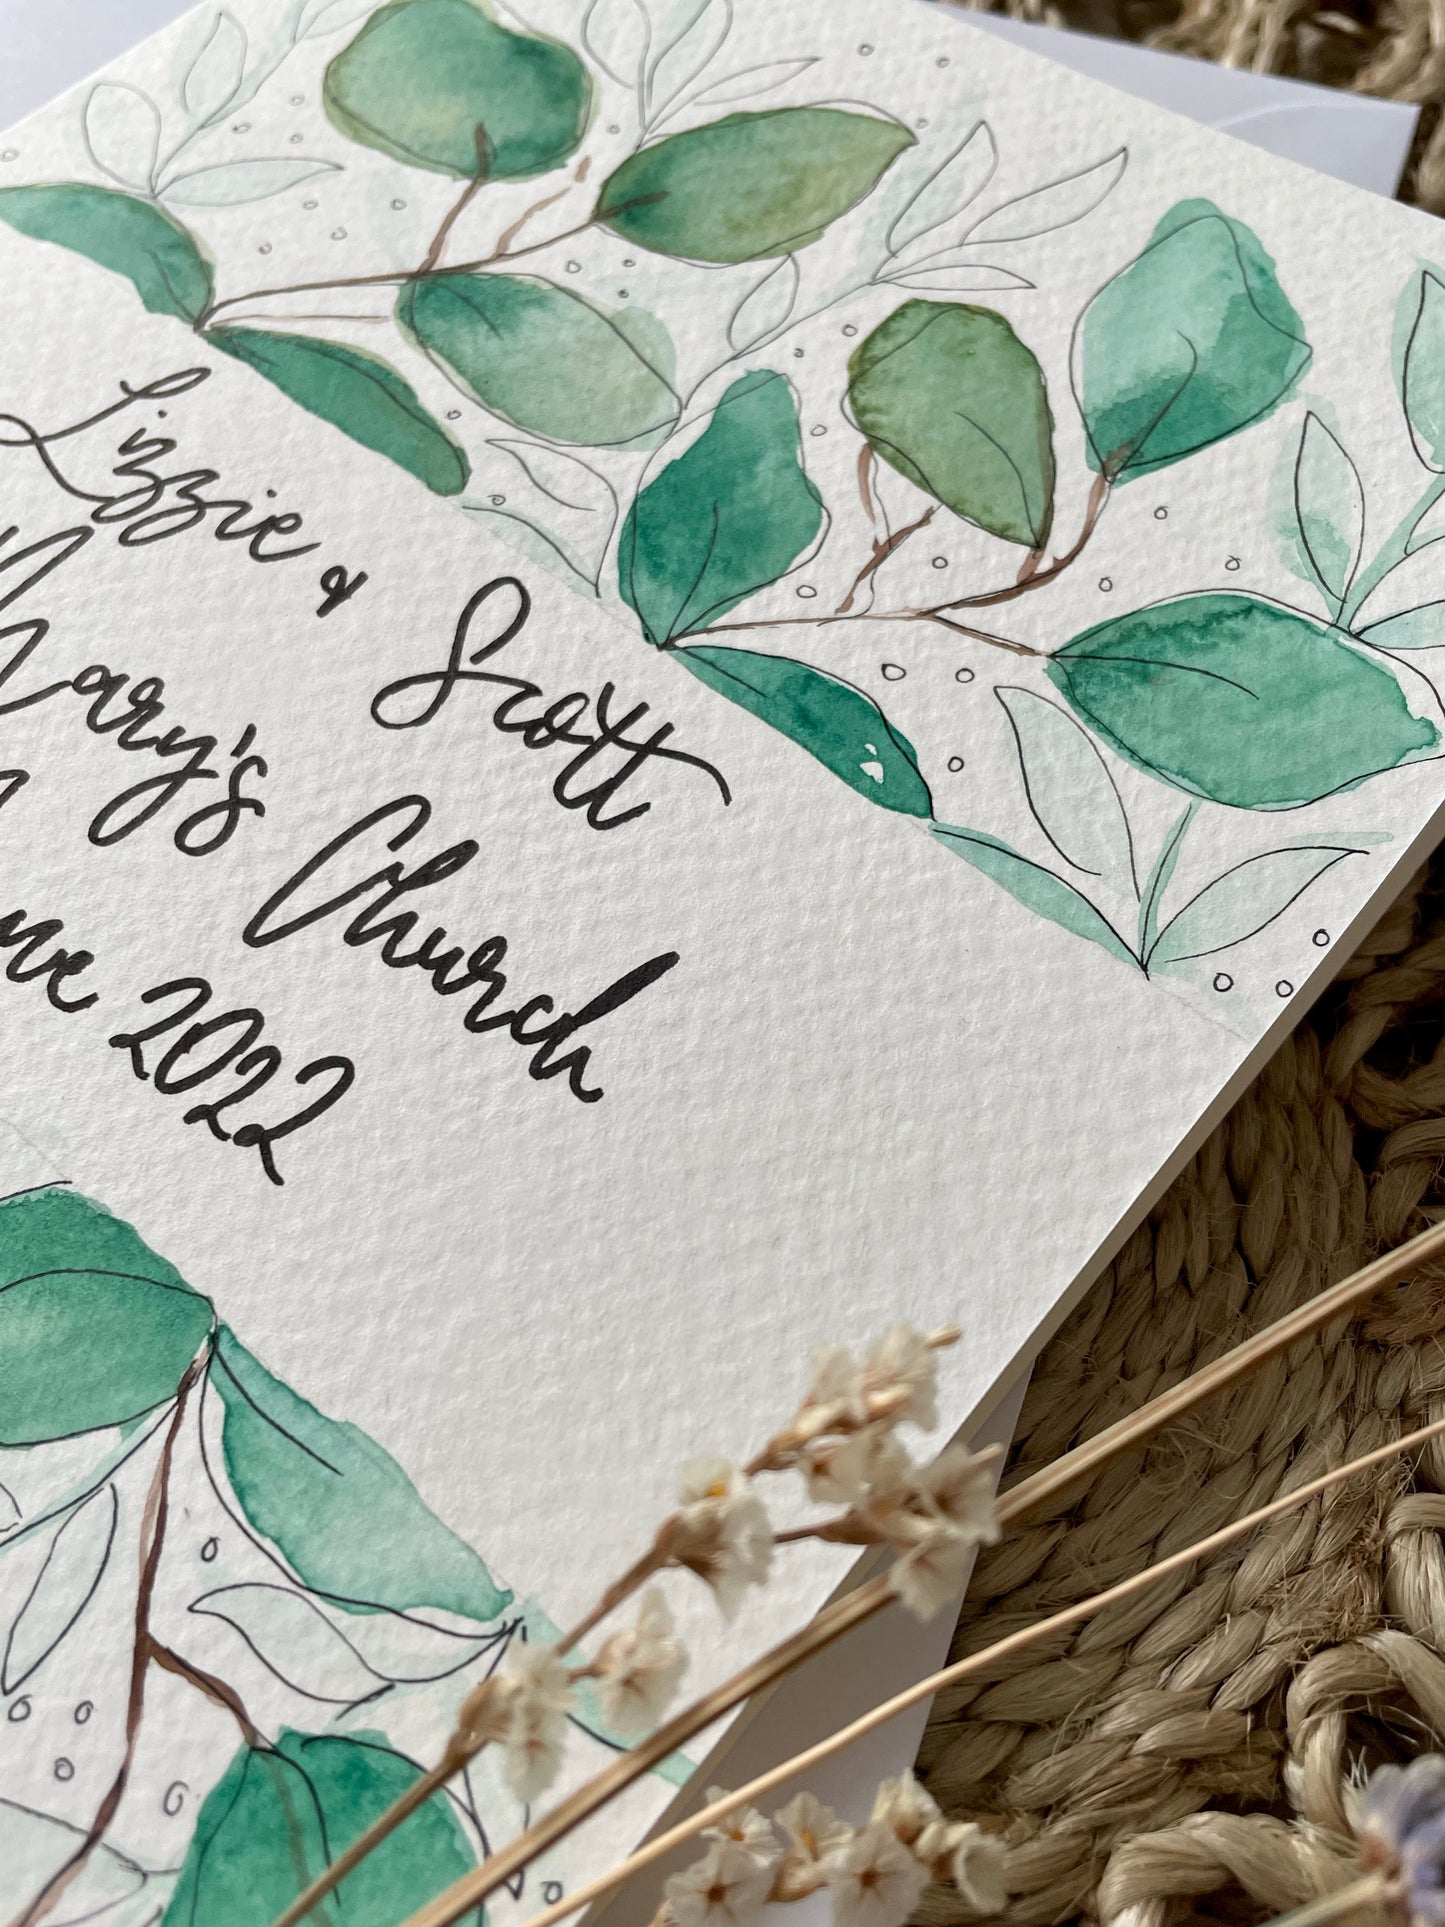 Lizzie & Scott
Mary's Church
2022